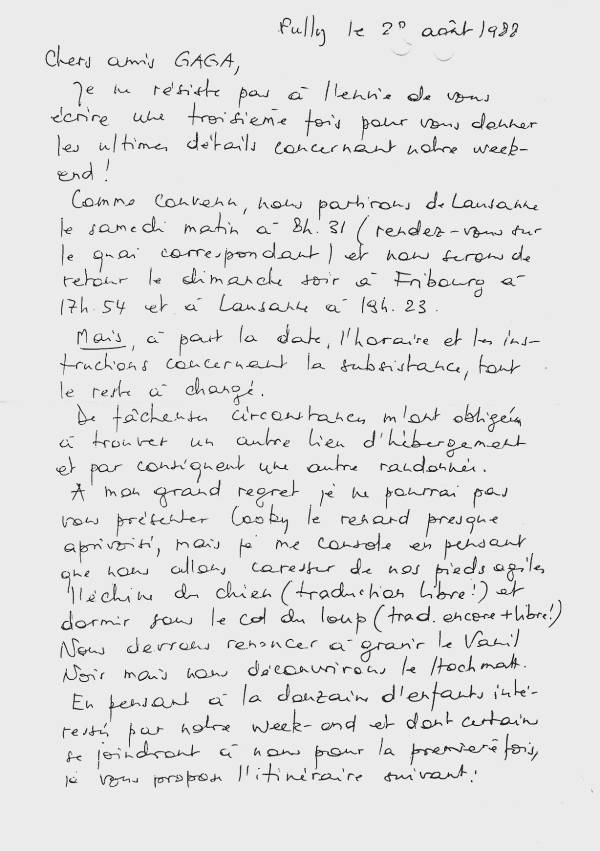 Pully le 20 août 1988
Chers amis GAGA,
Je ne résiste pas à l'envie de vous
écrire une troisième fois pour vous donner
les ultimes détails concernant notre week-
end !
Comme convenu, nous partirons de Lausanne
le samedi matin à 8h.31 (rendez-vous sur
le quai correspondant) et nous serons de
retour le dimanche soir à Fribourg à
17h.54 et à Lausanne à 19h.23.
Mais, à part la date, l'horaire et les ins-
tructions concernant la subsistance, tout
le reste a changé.
De fâcheuses circonstances m'ont obligée
à trouver un autre lieu d'hébergement
et par conséquent une autre randonnée.
A mon grand regret je ne pourrai pas
vous présenter Cooky le renard presque
aprivoisé, mais je me console en pensant
que nous allons caresser de nos pieds agiles
l'échine du chien (traduction libre!) et
dormir sous le col du loup (trad. encore + libre!)
Nous devrons renoncer à gravir le Vanil
Noir mais nous découvrirons le Hochmatt.
En pensant à la douzaine d'enfants inté-
ressés par notre week-end et dont certains
se joindront à nous pour la première fois,
je vous propose l'itinéraire suivant: